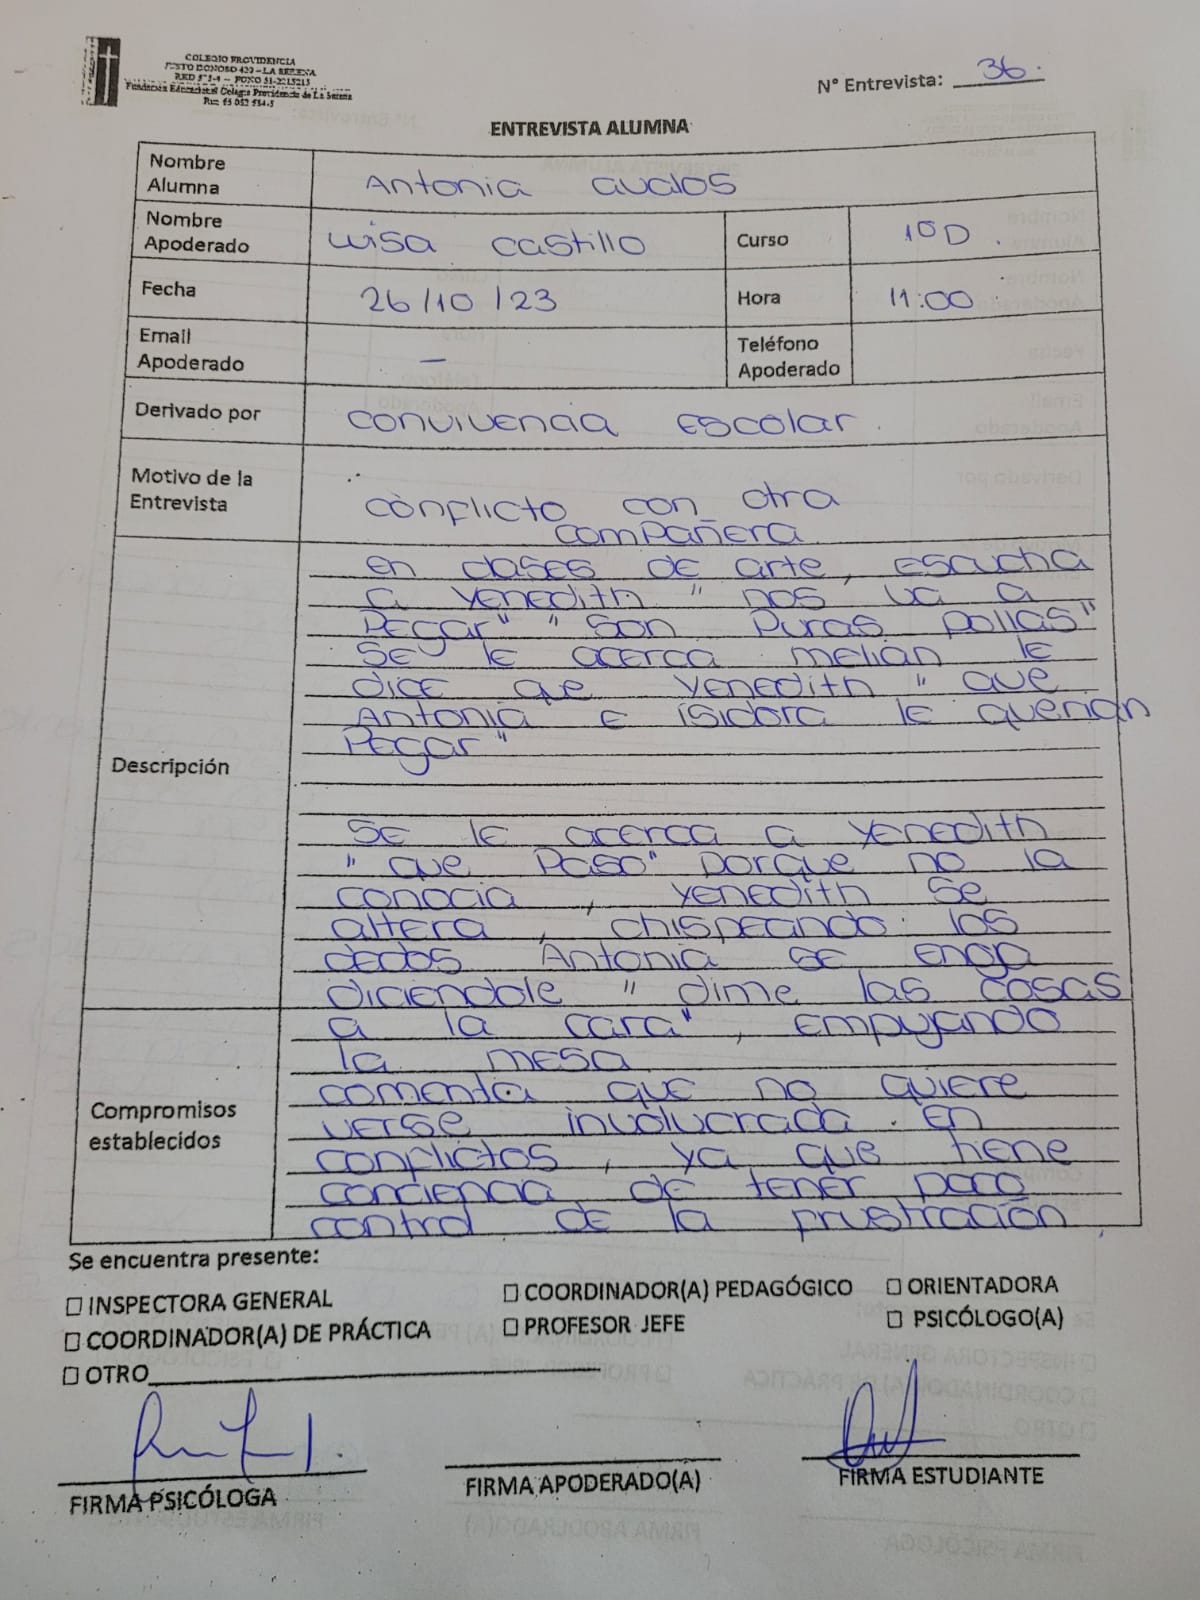 COLEGIO PROVIDENCIA
JUSTO DONOSO 420 – LA SERENA
Fundación Educacional Colegio Providencia de La Serena
N° Entrevista: 36.
ENTREVISTA ALUMNA
Nombre Alumna Antonia avalos
Nombre Apoderado Luisa castillo Curso 1ºD.
Fecha 26/10/23 Hora 11:00
Email Apoderado – Teléfono Apoderado
Derivado por convivencia Escolar.
Motivo de la Entrevista conflicto con otra
compañera.
Descripción
en clases de arte, Escucha
a Yenedith " nos va a
Pegar" " son Puras pollas"
SE le acerca melian le
dice que Yenedith " que
Antonia e isidora le querian
Pegar"
SE le acerca a Yenedith
" que Paso" porque no la
conocia, Yenedith se
altera, chispeando los
dedos Antonia se enoja
diciendole " dime las cosas
a la cara", Empujando
la mesa.
Compromisos establecidos
comenta que no quiere
verse involucrada en
conflictos, ya que tiene
conciencia de tener poco
control de la frustración
Se encuentra presente:
☐ INSPECTORA GENERAL ☐ COORDINADOR(A) PEDAGÓGICO ☐ ORIENTADORA
☐ COORDINADOR(A) DE PRÁCTICA ☐ PROFESOR JEFE ☐ PSICÓLOGO(A)
☐ OTRO
FIRMA PSICÓLOGA FIRMA APODERADO(A) FIRMA ESTUDIANTE